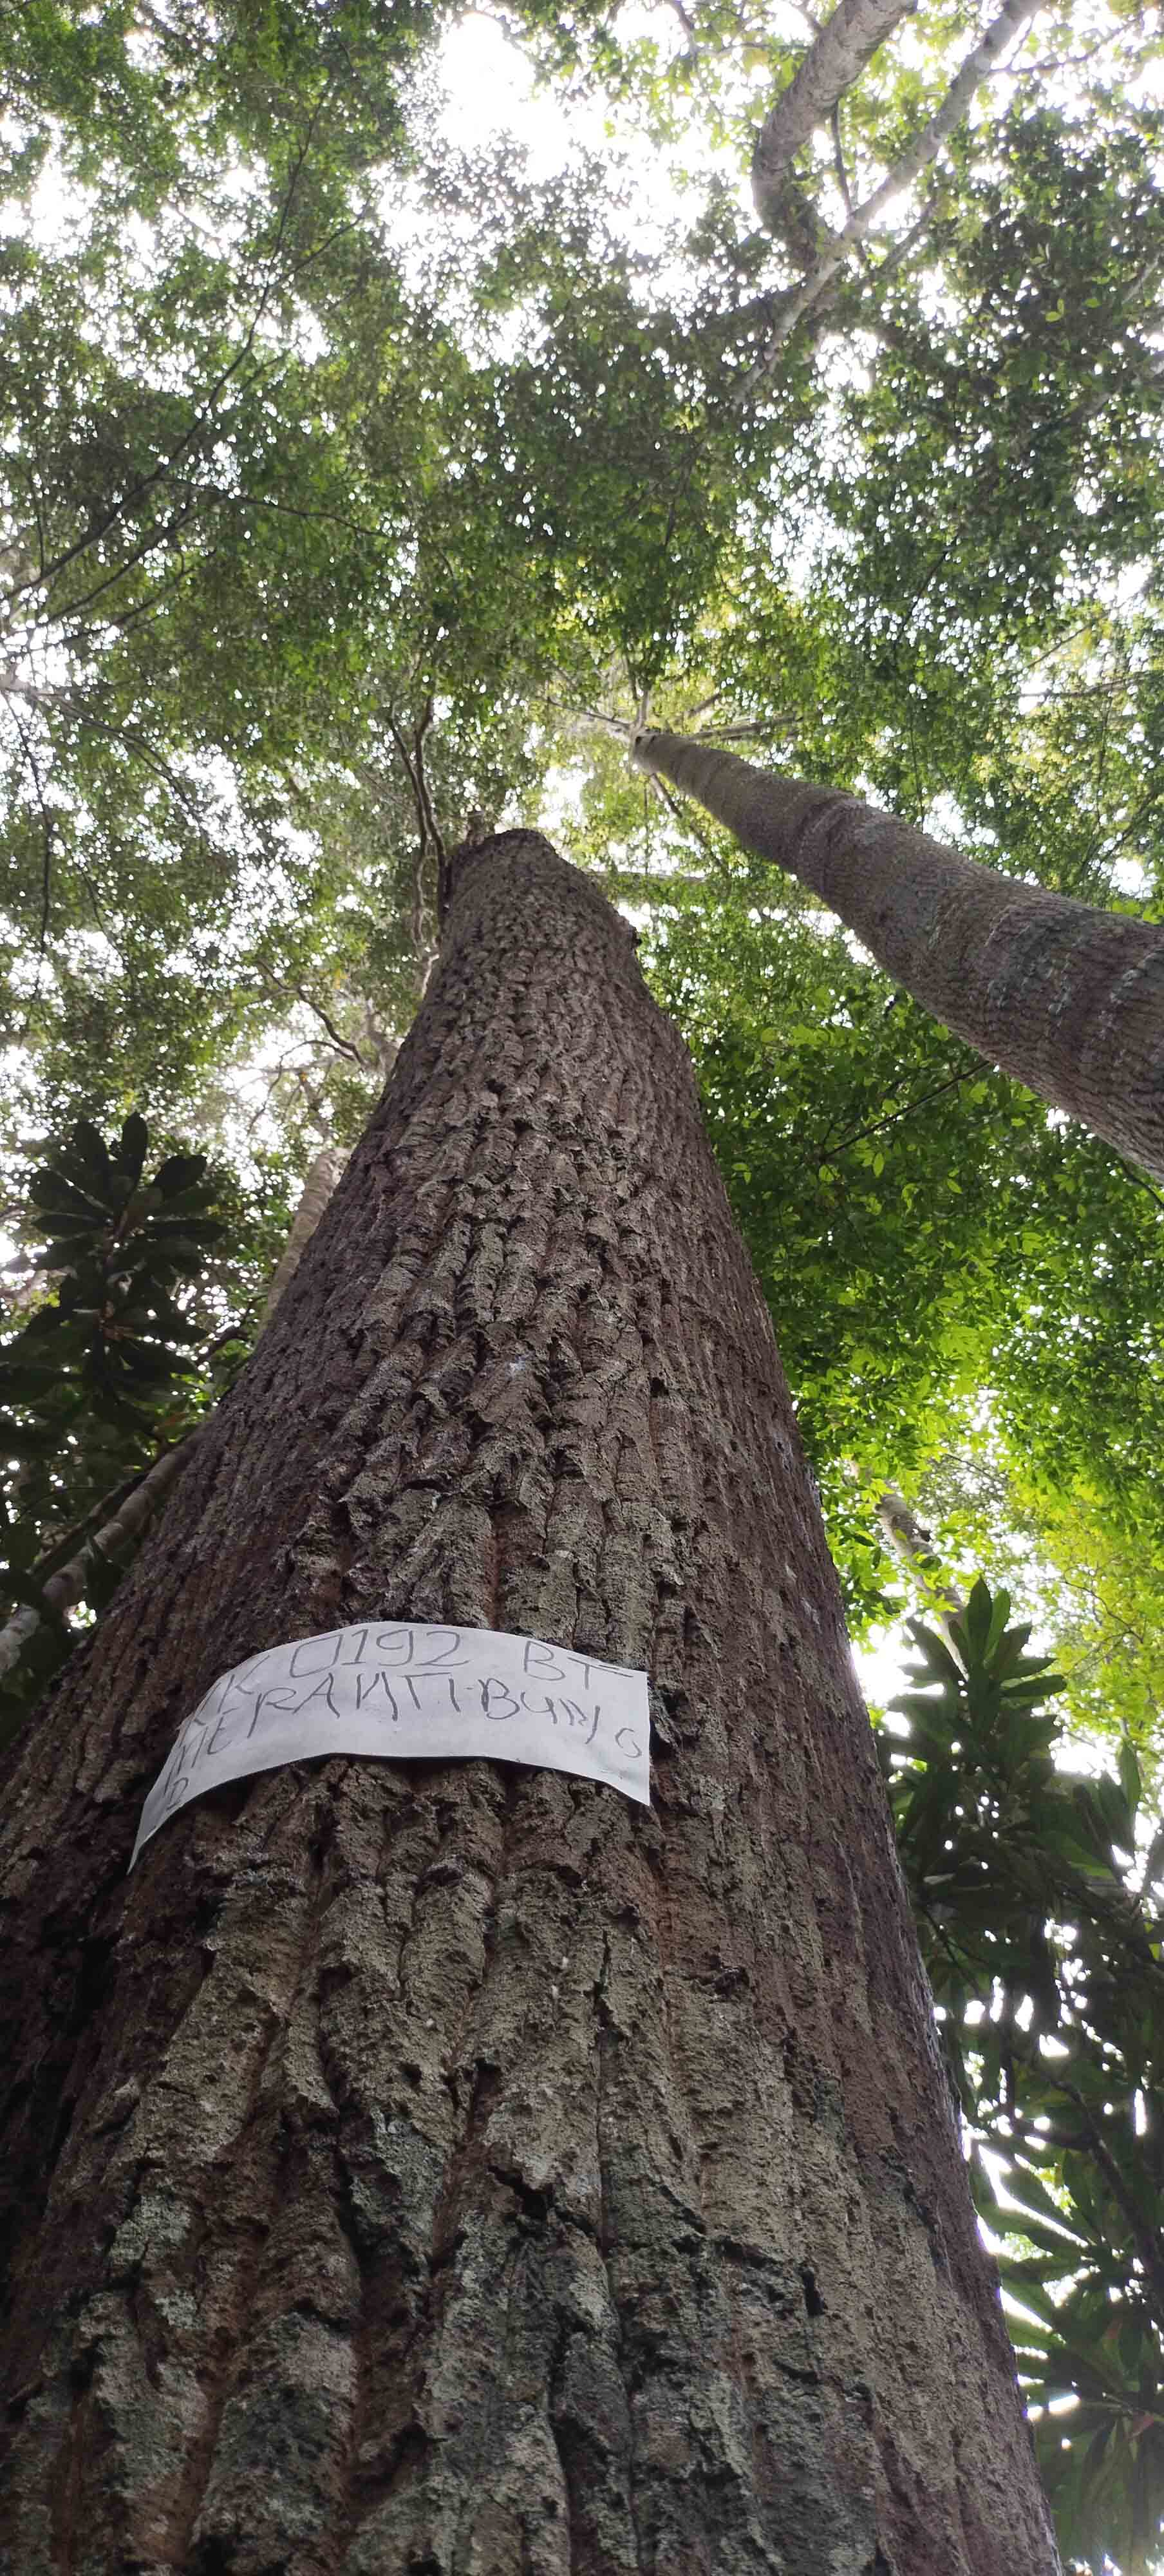 KK 0192 BT
MERANTI-BUNG
2